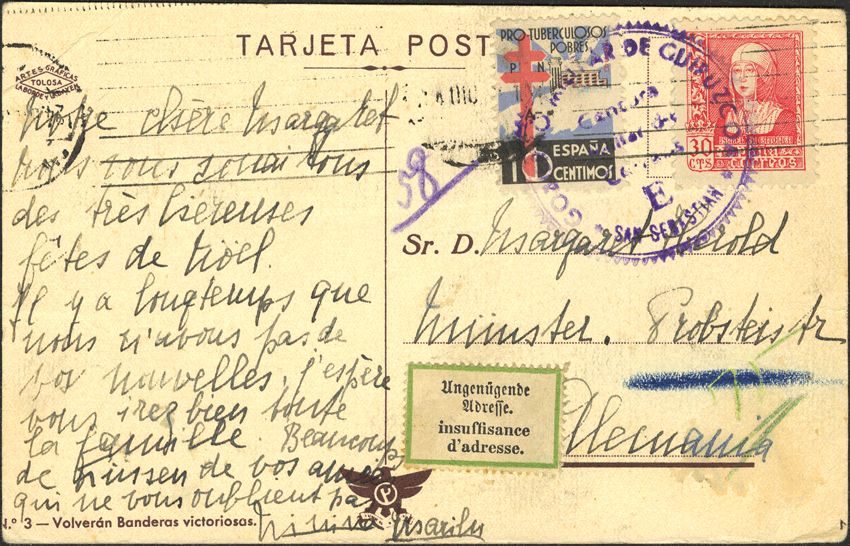 TARJETA POST
ARTES GRÁFICAS
TOLOSA
LABORDE Y LABAYEN
PRO-TUBERCULOSOS
POBRES
P N
A
ESPAÑA
10 CENTIMOS
30
CTS
CORREOS
GOB MILITAR DE GUIPUZCOA
Censura
Militar de
Correos
E
SAN SEBASTIAN
58
Notre chère Margaret
nous vous souhaitons
des très hereuses
fêtes de Noël.
Il y a longtemps que
nous n'avons pas de
vos nouvelles, j'espère
vous irez bien toute
la famille. Beaucoup
de küssen de vos amies
qui ne vous oublient pas
Marilu
Sr. D. Margaret Herold
Münster. Probsteistr
Alemania
Ungenügende
Adresse.
insuffisance
d'adresse.
N.º 3 — Volverán Banderas victoriosas.